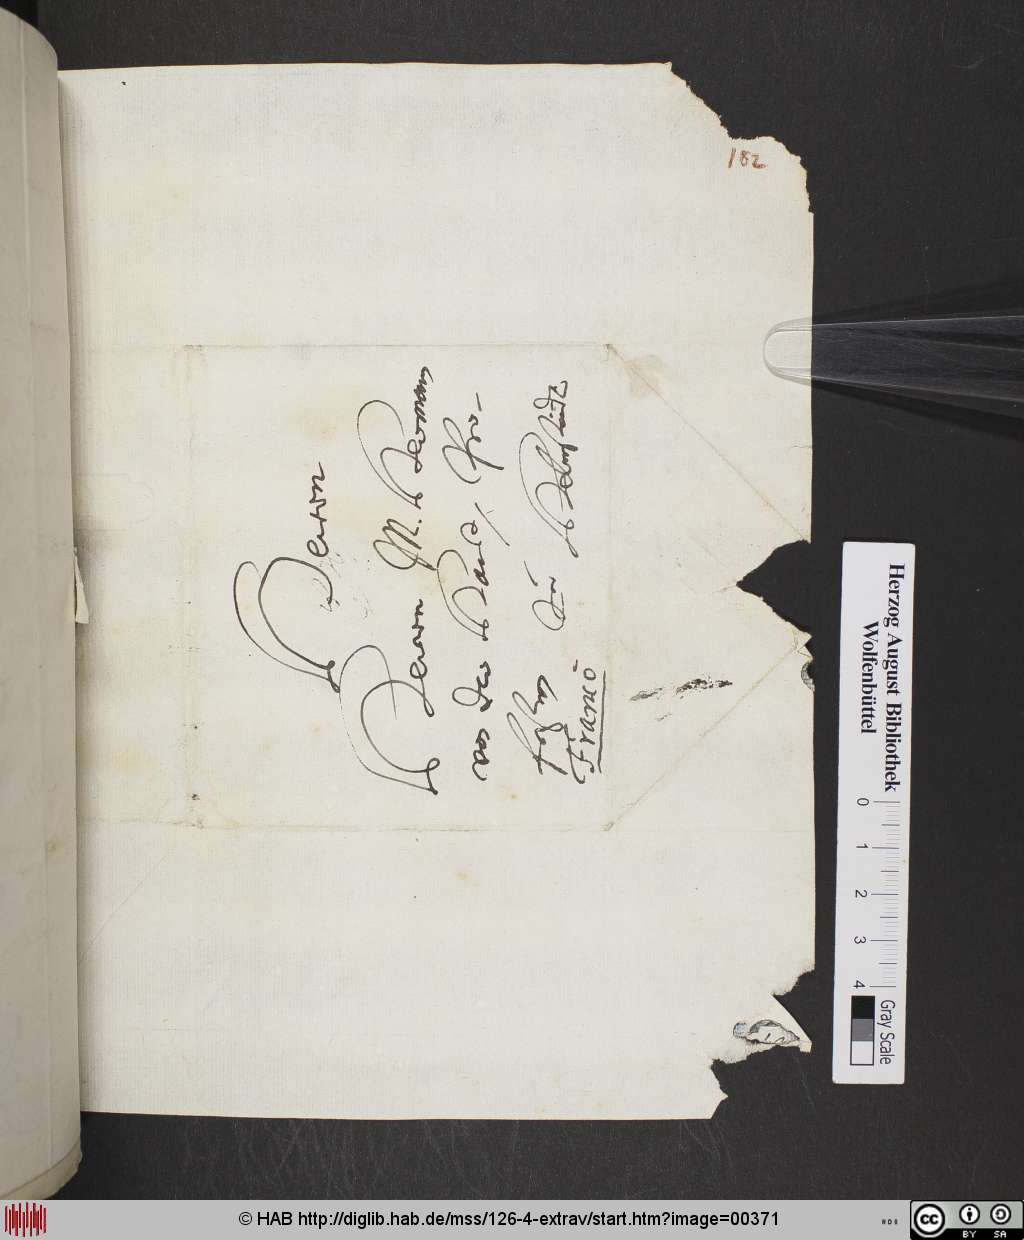 182
Herrn
Herrn M. Herman
von der Hardt, Pro-
zu Helmstedt
Franco
Herzog August Bibliothek
Wolfenbüttel
0 1 2 3 4
Gray Scale
© HAB http://diglib.hab.de/mss/126-4-extrav/start.htm?image=00371
cc BY SA